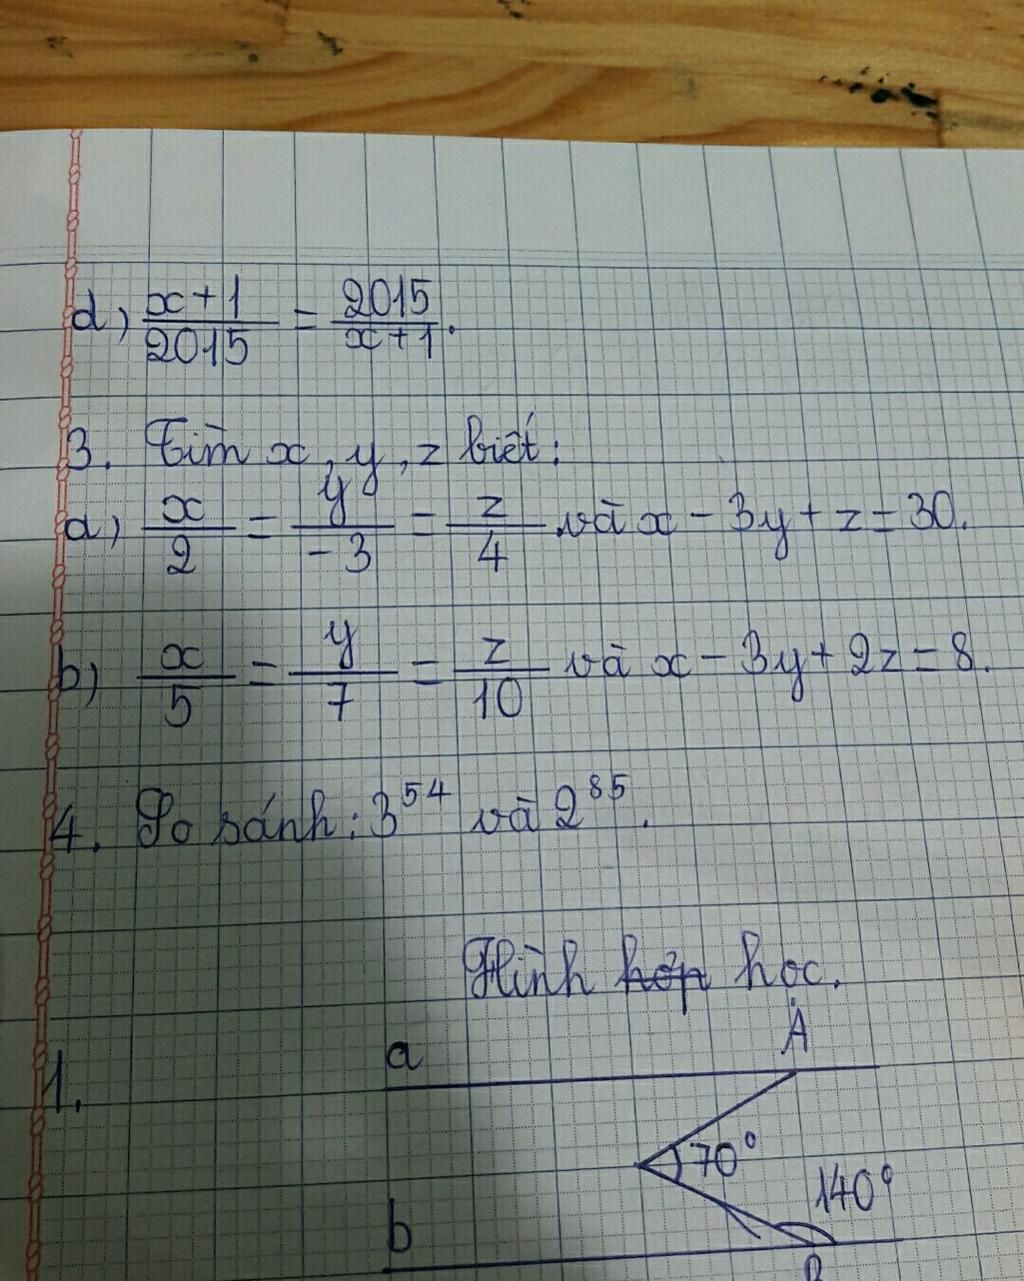 d) x+1/2015 = 2015/x+1.
3. Tìm x, y, z biết:
a) x/2 = y/-3 = z/4 và x - 3y + z = 30.
b) x/5 = y/7 = z/10 và x - 3y + 2z = 8.
4. So sánh: 3^54 và 2^85.
Hình hợp học.
1.
a
A
70°
140°
b